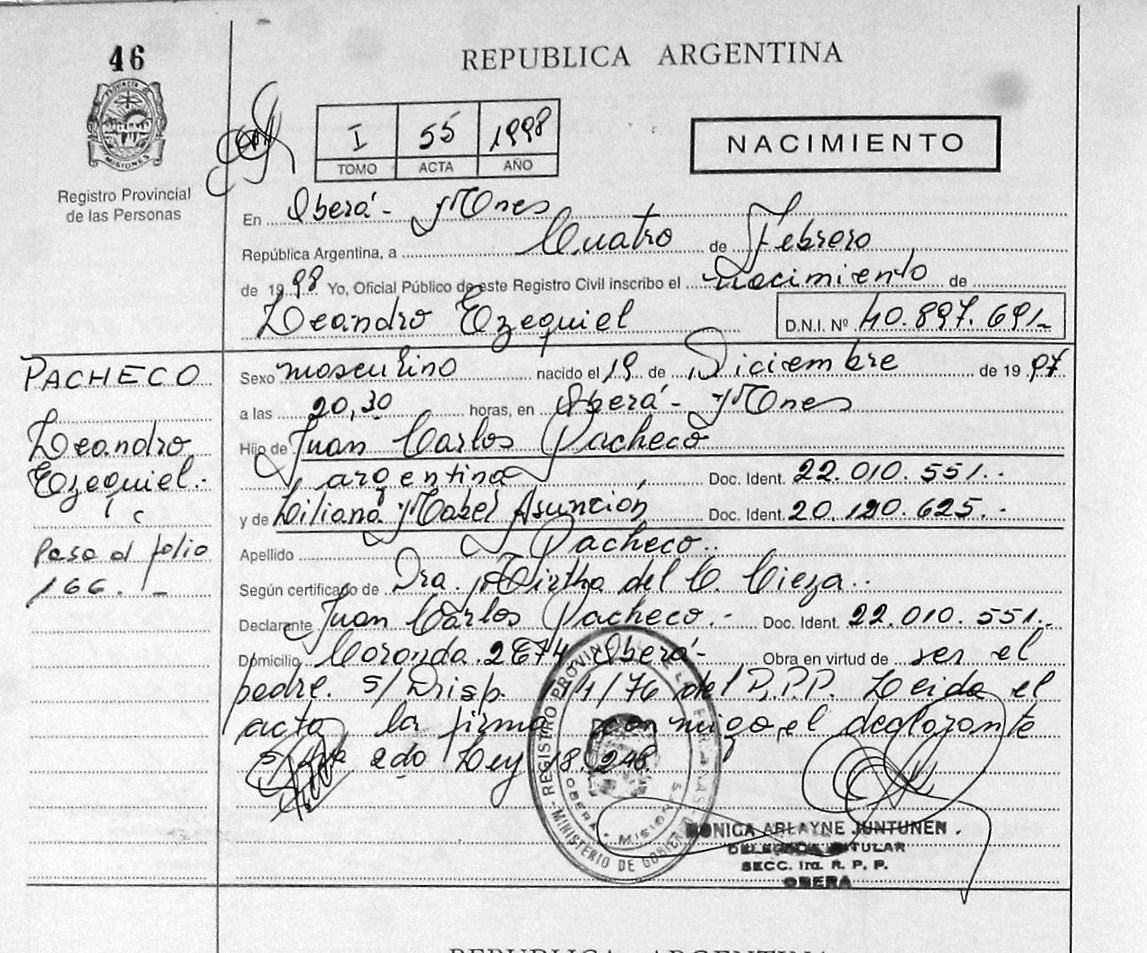 46
REPUBLICA ARGENTINA
PROVINCIA DE MISIONES
Registro Provincial
de las Personas
I 55 1998
TOMO ACTA AÑO
NACIMIENTO
En Oberá- Mnes
República Argentina, a Cuatro de Febrero
de 1998 Yo, Oficial Público de este Registro Civil inscribo el Nacimiento de
Leandro Ezequiel D.N.I. Nº 40.897.691-
PACHECO
Leandro
Ezequiel.-
Pasa al folio
166.-
Sexo masculino nacido el 19 de Diciembre de 1997
a las 20,30 horas, en Oberá- Mnes
Hijo de Juan Carlos Pacheco
argentino Doc. Ident. 22.010.551.-
y de Liliana Mabel Asunción Doc. Ident. 20.120.625.-
Apellido Pacheco..
Según certificado de Dra. Mirtha del C. Cieza..
Declarante Juan Carlos Pacheco.- Doc. Ident. 22.010.551.-
Domicilio Coronda 2674 Oberá- Obra en virtud de ser el
padre. s/Disp. 11/76 del R.P.P. Leida el
acta la firma conmigo, el declarante
ado Ley 18.248
REGISTRO PROVINCIAL DE LAS PERSONAS
OBERA - MISIONES
MINISTERIO DE GOBIERNO
MONICA ARLAYNE JUNTUNEN.
DELEGADA TITULAR
SECC. 1ra. R. P. P.
OBERA
REPUBLICA ARGENTINA